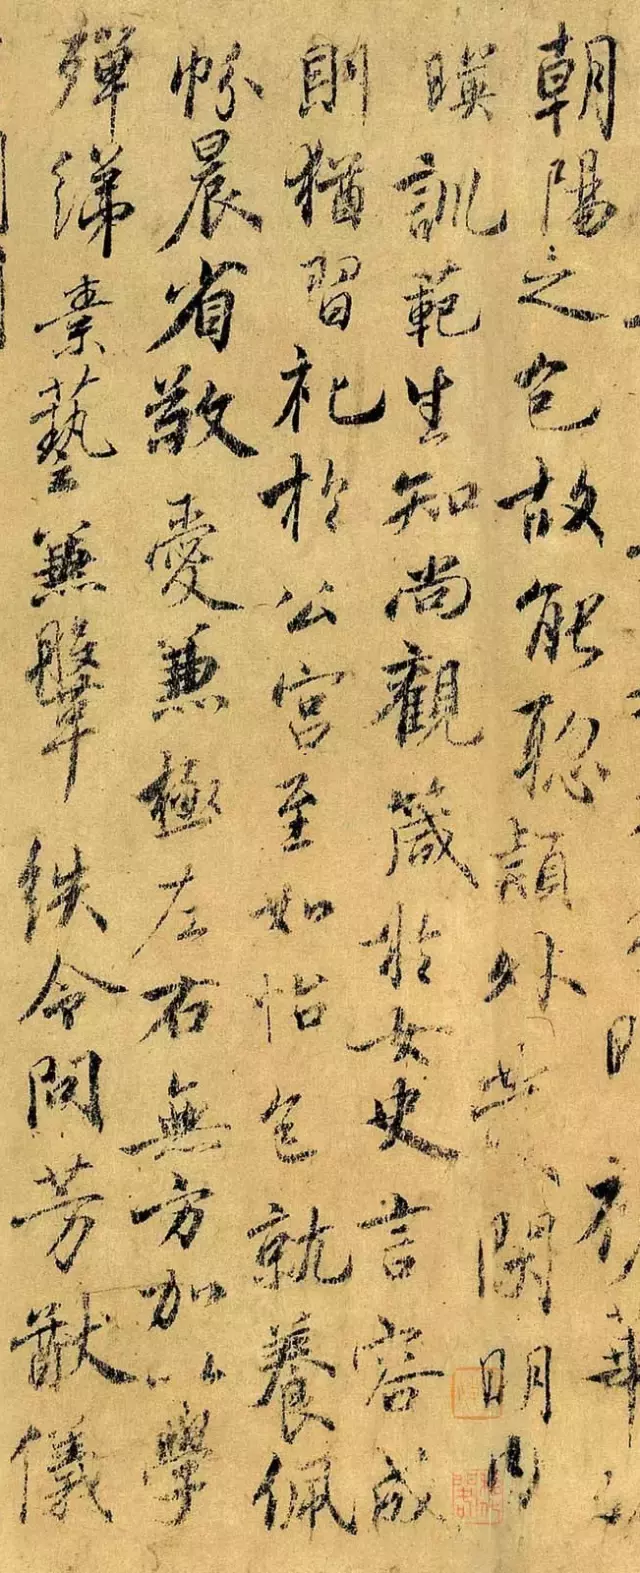 朝陽之色故能聡頴外發閑明内
暎訓範生知尚觀箴於女史言容成
則猶習礼於公宮至如怡色就養佩
帉晨省敬愛兼極左右無方加以學
殫綈素藝兼鞶紩令問芳猷儀